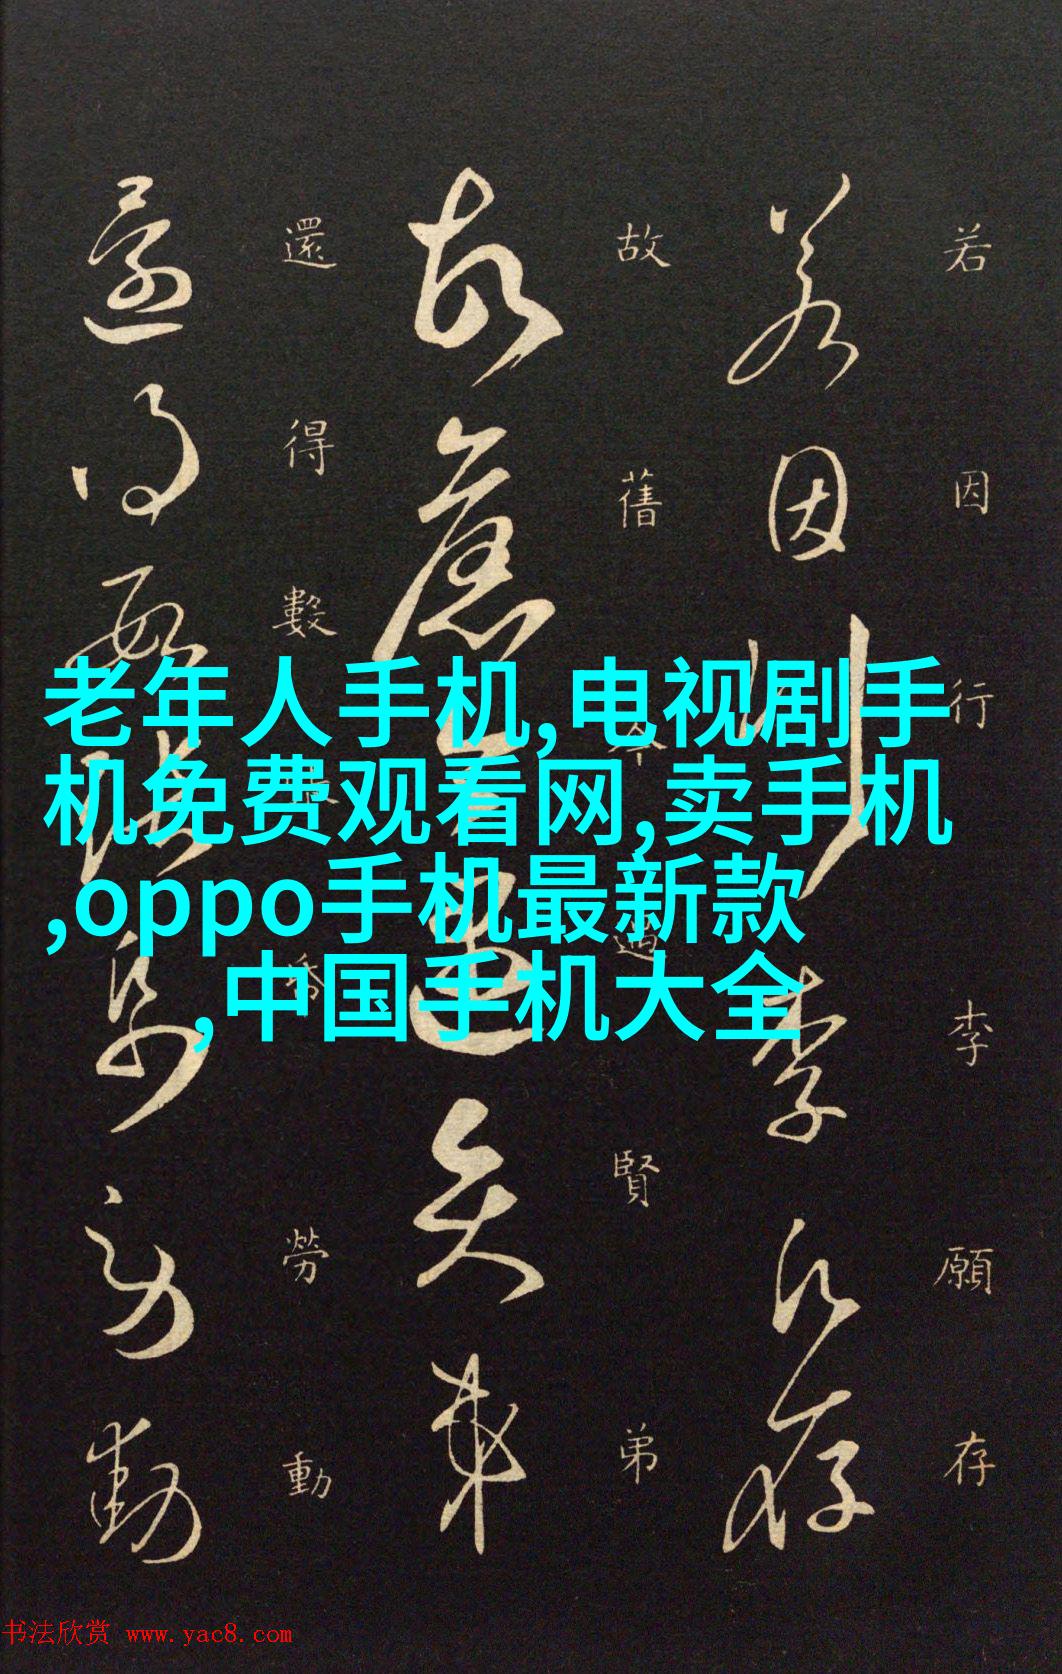 若因行李願存
故舊今遇賢弟
還得數張委勞動
老年人手机,电视剧手
机免费观看网,卖手机
,oppo手机最新款
,中国手机大全
书法欣赏 www.yac8.com